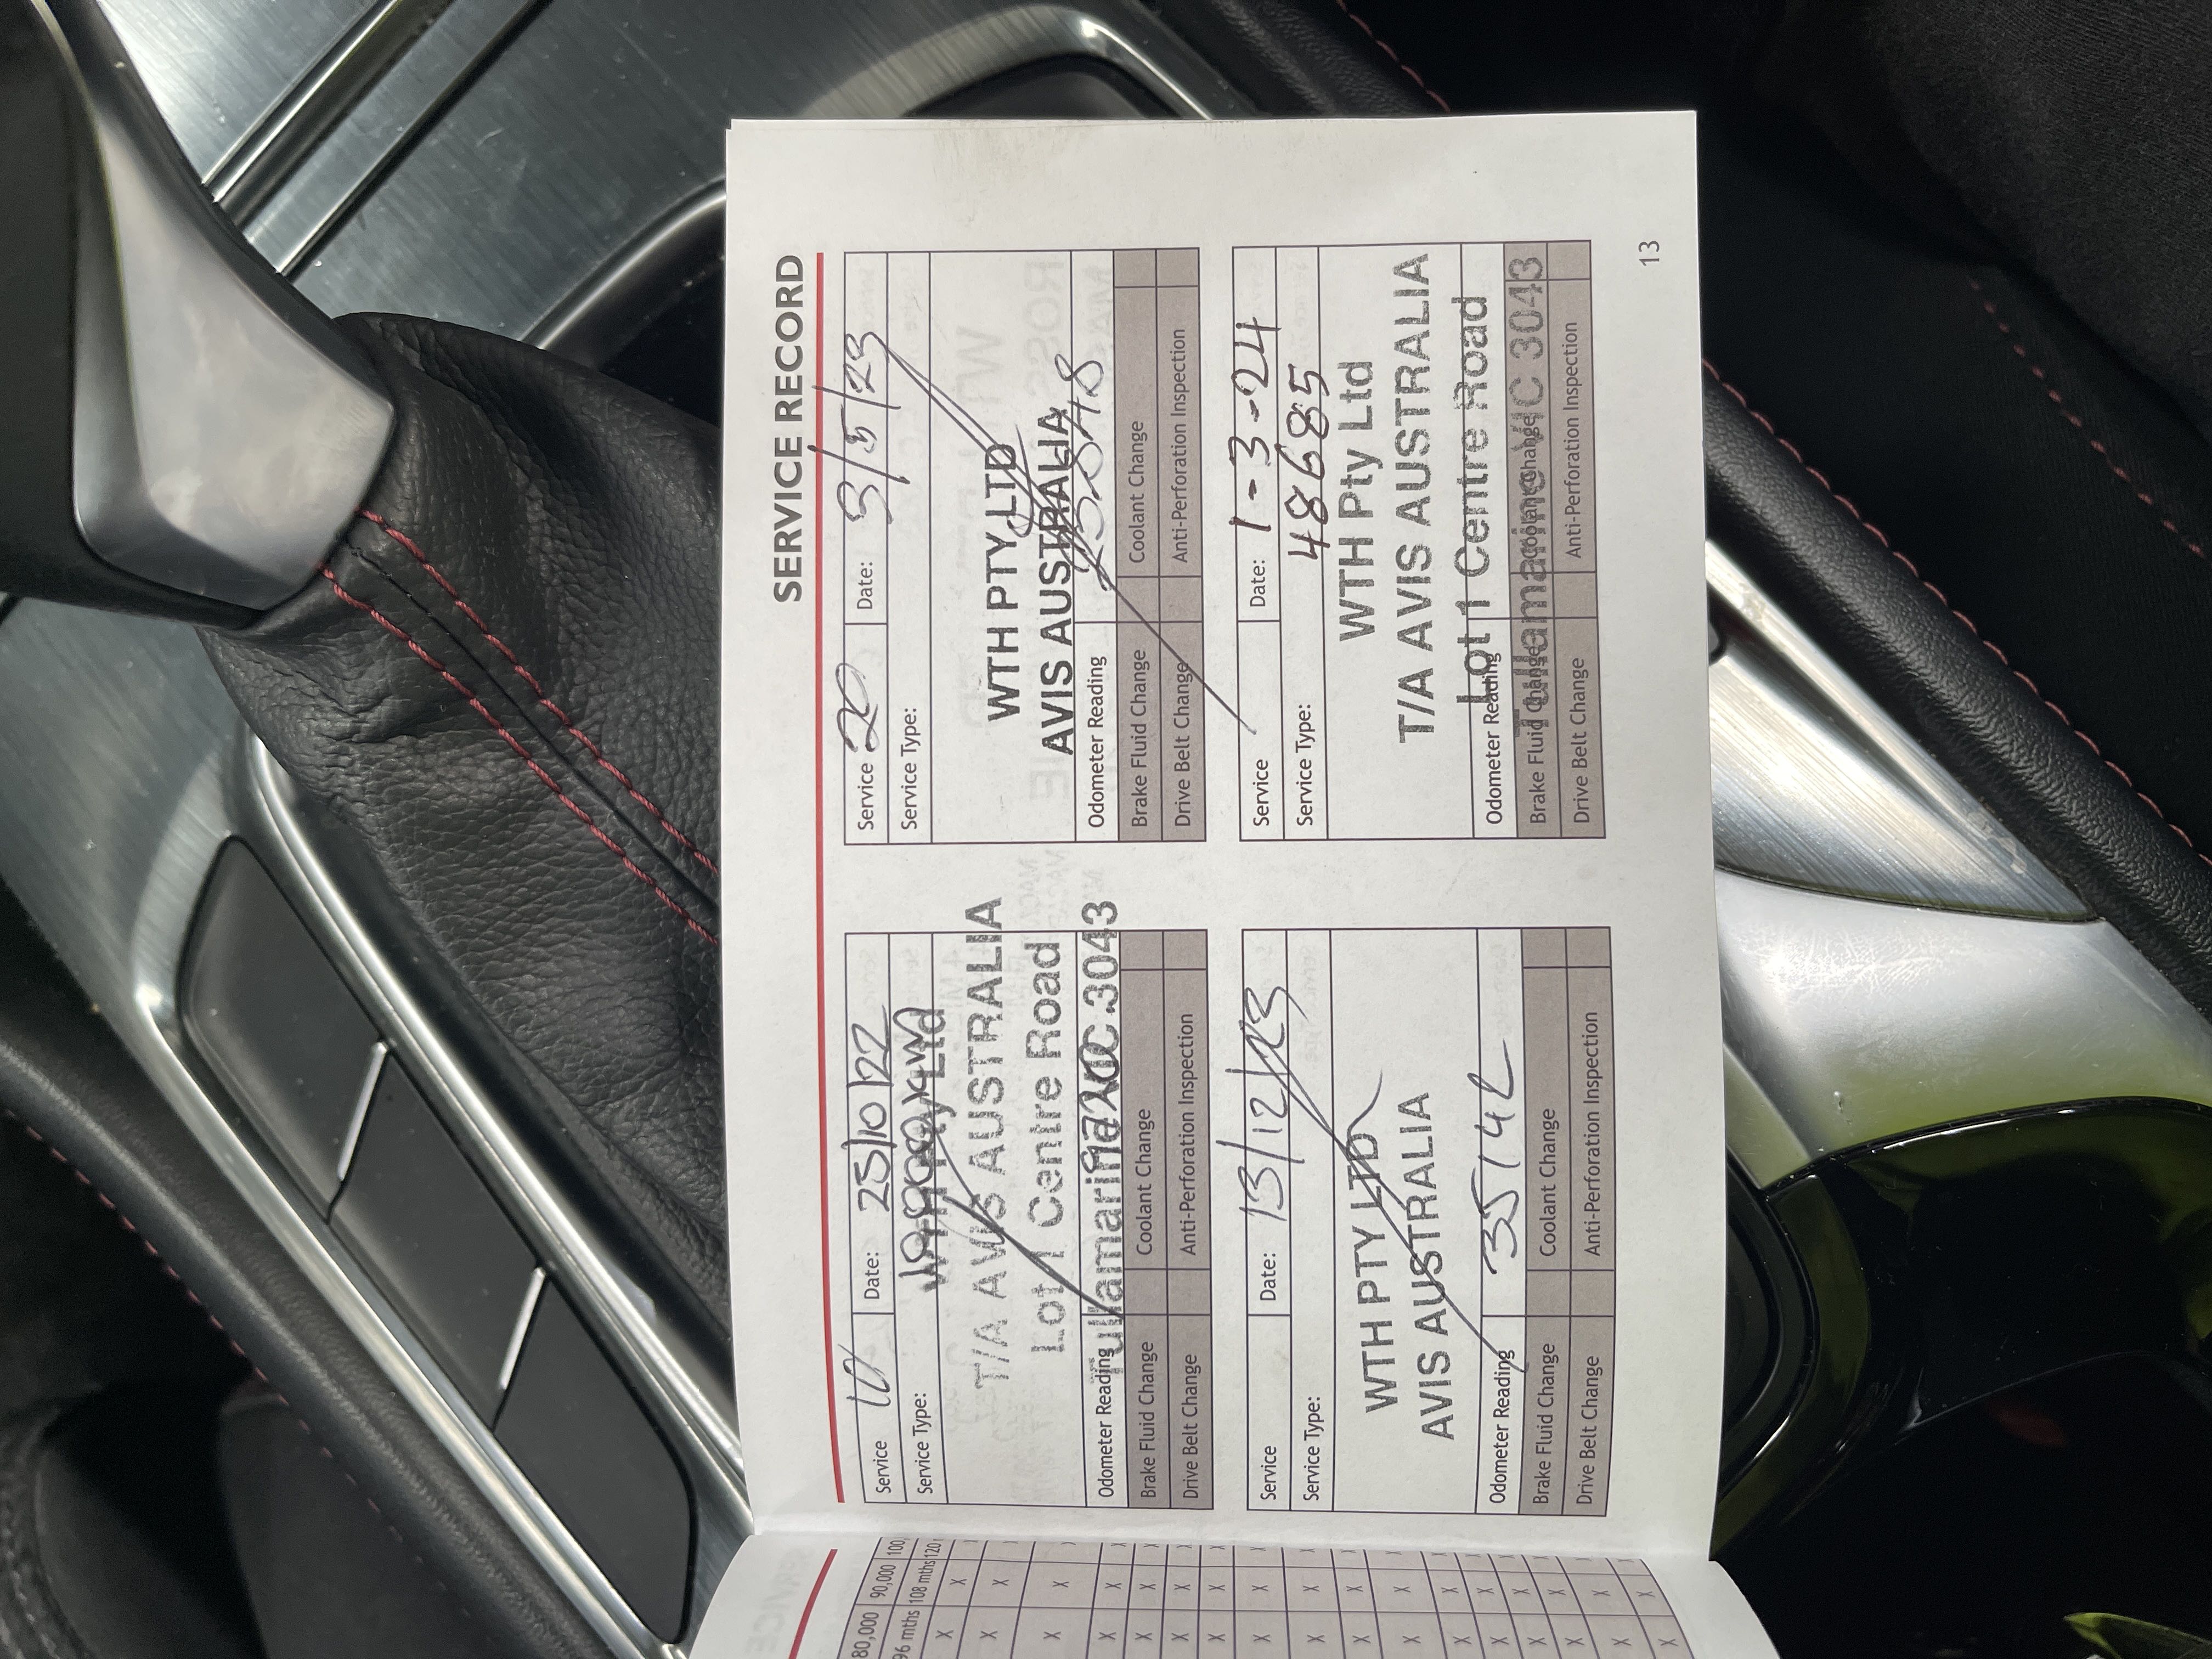 SERVICE RECORD
Service 10 Date: 25/10/22
Service Type: 10000km
WTH Pty Ltd
T/A AVIS AUSTRALIA
Lot 1 Centre Road
Tullamarine VIC 3043
Odometer Reading
Brake Fluid Change Coolant Change
Drive Belt Change Anti-Perforation Inspection
Service 20 Date: 3/5/23
Service Type:
WTH PTY LTD
AVIS AUSTRALIA
Odometer Reading
Brake Fluid Change Coolant Change
Drive Belt Change Anti-Perforation Inspection
Service Date: 13/12/23
Service Type:
WTH PTY LTD
AVIS AUSTRALIA
Odometer Reading 35142
Brake Fluid Change Coolant Change
Drive Belt Change Anti-Perforation Inspection
Service Date: 1-3-24
Service Type: 48685
WTH Pty Ltd
T/A AVIS AUSTRALIA
Lot 1 Centre Road
Tullamarine VIC 3043
Odometer Reading
Brake Fluid Change Coolant Change
Drive Belt Change Anti-Perforation Inspection
13
80,000 90,000 100
96 mths 108 mths 120